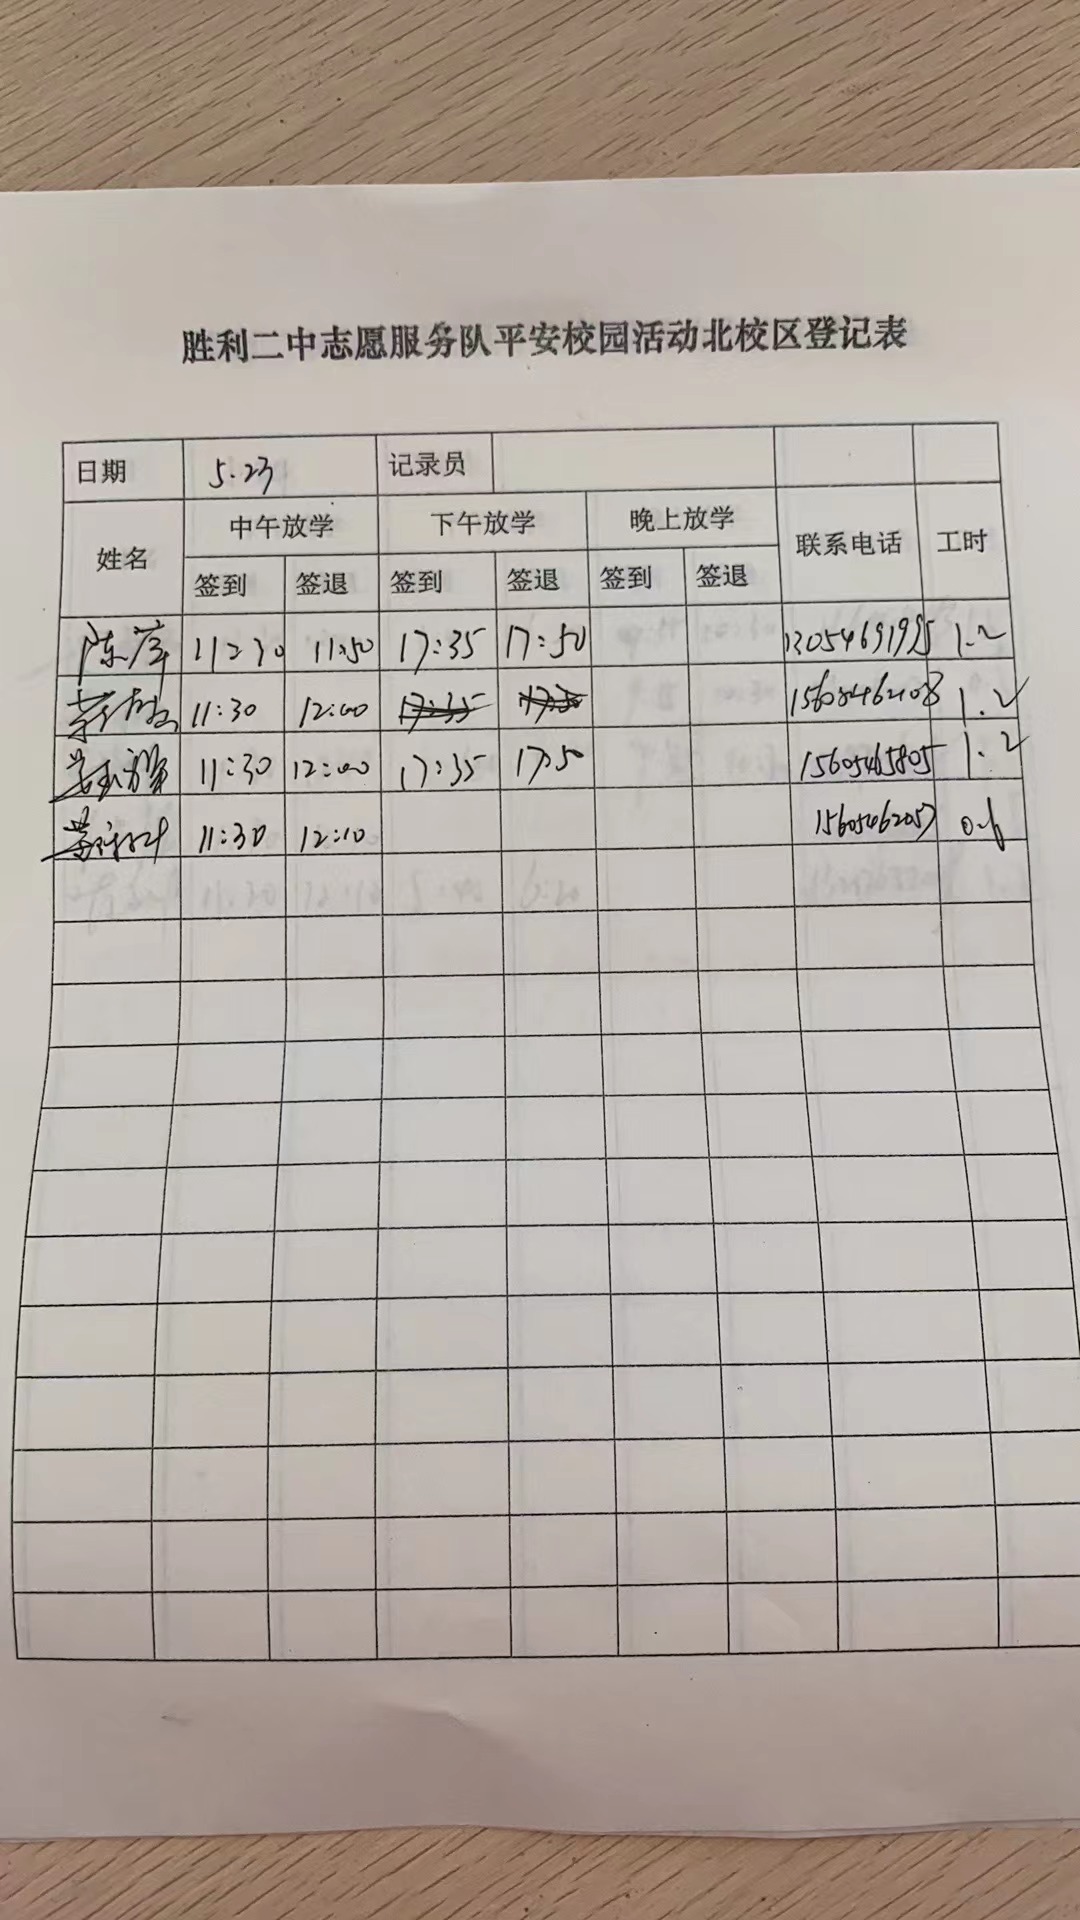 胜利二中志愿服务队平安校园活动北校区登记表
日期 5.23 记录员
姓名 中午放学 下午放学 晚上放学 联系电话 工时
签到 签退 签到 签退 签到 签退
陈萍 11:30 11:50 17:35 17:50 13054691995 1.2
11:30 12:00 17:35 1.2
11:30 12:00 17:35 17:50 15605465805 1.2
11:30 12:10 0.6